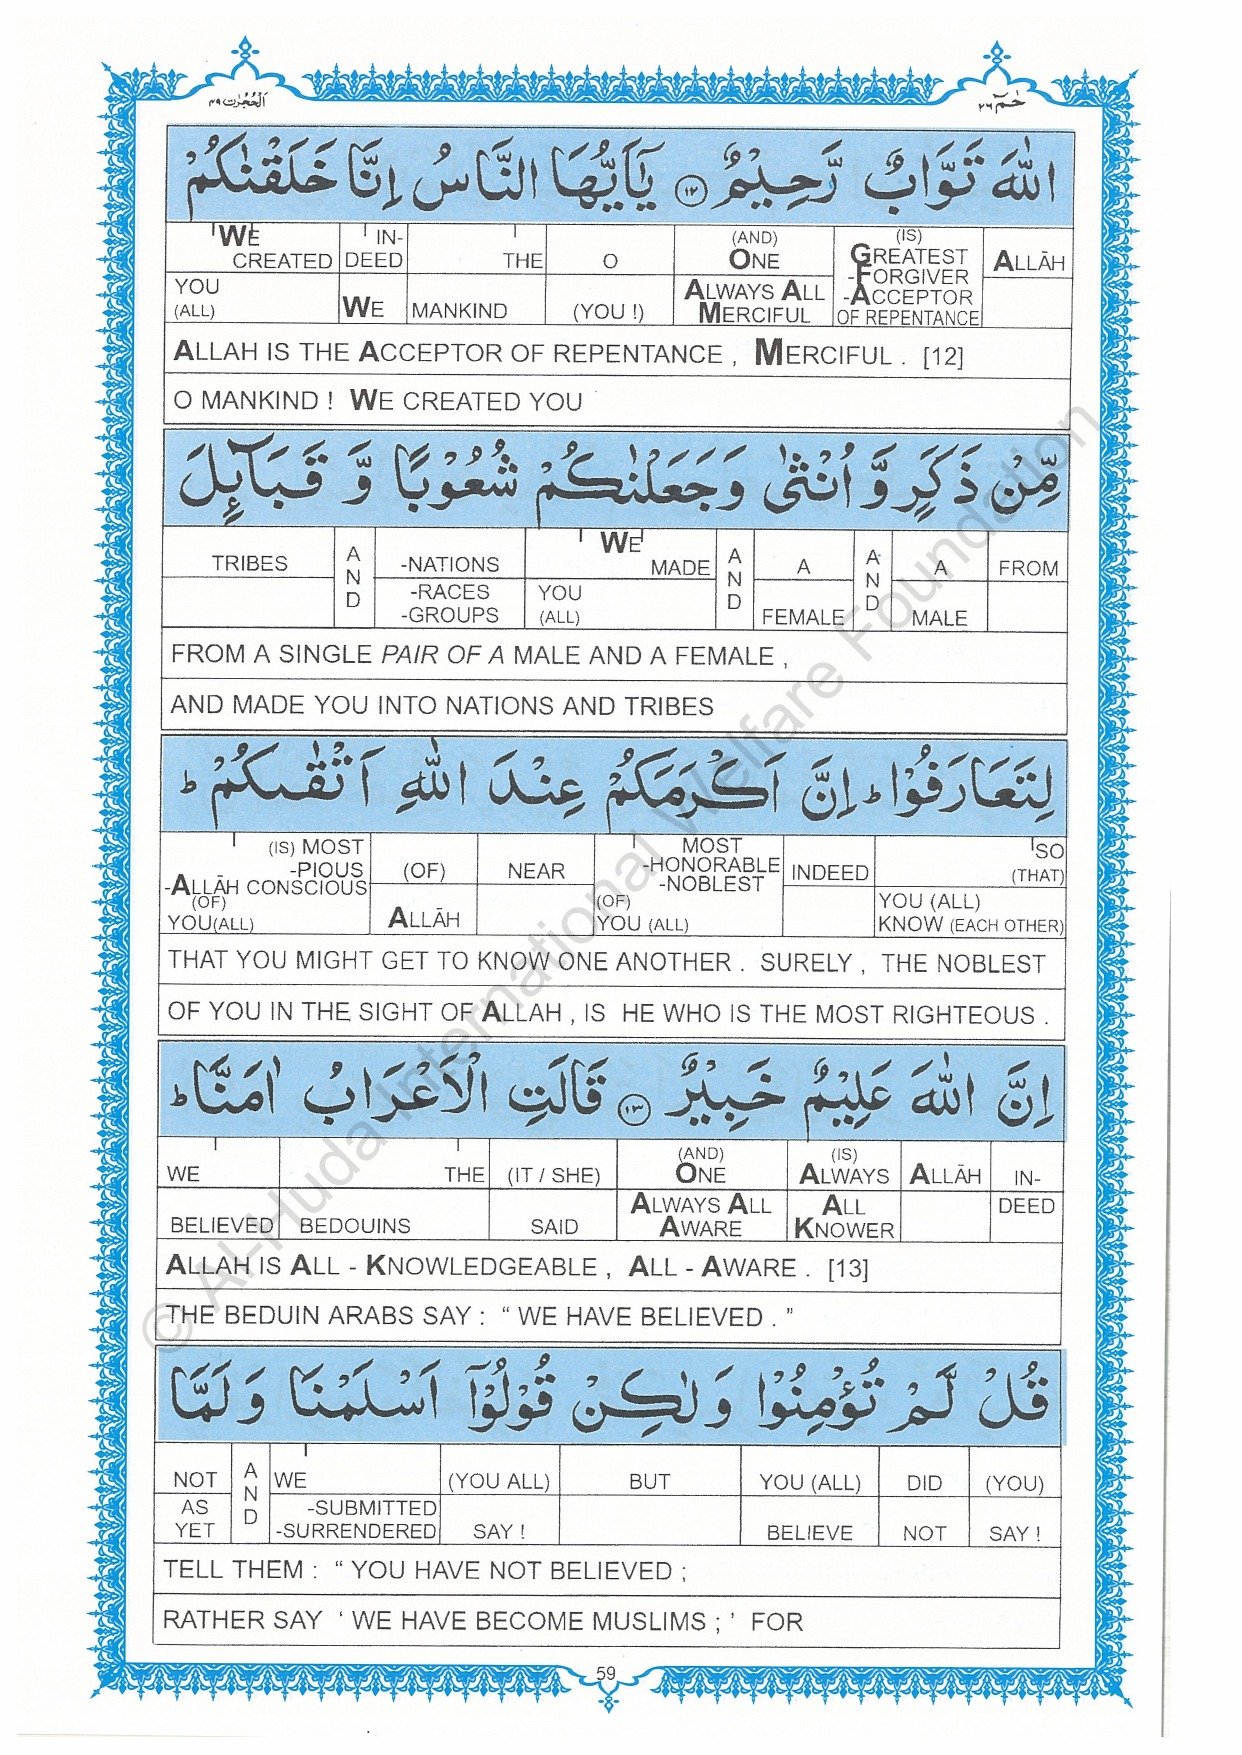 الحُجُرٰت ٤٩
حٰمٓ ٢٦
اللّٰهَ تَوَّابٌ رَّحِيْمٌ ۝١٢ يٰٓاَيُّهَا النَّاسُ اِنَّا خَلَقْنٰكُمْ
WE CREATED YOU (ALL) | INDEED WE | THE MANKIND | O (YOU !) | (AND) ONE ALWAYS ALL MERCIFUL | (IS) GREATEST -FORGIVER -ACCEPTOR OF REPENTANCE | ALLĀH
ALLAH IS THE ACCEPTOR OF REPENTANCE , MERCIFUL . [12]
O MANKIND ! WE CREATED YOU
مِّنْ ذَكَرٍ وَّ اُنْثٰى وَ جَعَلْنٰكُمْ شُعُوْبًا وَّ قَبَآئِلَ
TRIBES | AND | -NATIONS -RACES -GROUPS | WE MADE YOU (ALL) | AND | A FEMALE | AND | A MALE | FROM
FROM A SINGLE PAIR OF A MALE AND A FEMALE ,
AND MADE YOU INTO NATIONS AND TRIBES
لِتَعَارَفُوْا ؕ اِنَّ اَكْرَمَكُمْ عِنْدَ اللّٰهِ اَتْقٰىكُمْ ؕ
(IS) MOST -PIOUS -ALLĀH CONSCIOUS (OF) YOU(ALL) | (OF) ALLĀH | NEAR | MOST -HONORABLE -NOBLEST (OF) YOU (ALL) | INDEED | SO (THAT) YOU (ALL) KNOW (EACH OTHER)
THAT YOU MIGHT GET TO KNOW ONE ANOTHER . SURELY , THE NOBLEST
OF YOU IN THE SIGHT OF ALLAH , IS HE WHO IS THE MOST RIGHTEOUS .
اِنَّ اللّٰهَ عَلِيْمٌ خَبِيْرٌ ۝١٣ قَالَتِ الْاَعْرَابُ اٰمَنَّا ؕ
WE BELIEVED | THE BEDOUINS | (IT / SHE) SAID | (AND) ONE ALWAYS ALL AWARE | (IS) ALWAYS ALL KNOWER | ALLĀH | INDEED
ALLAH IS ALL - KNOWLEDGEABLE , ALL - AWARE . [13]
THE BEDUIN ARABS SAY : “ WE HAVE BELIEVED . ”
قُلْ لَّمْ تُؤْمِنُوْا وَلٰكِنْ قُوْلُوْٓا اَسْلَمْنَا وَ لَمَّا
NOT AS YET | AND | WE -SUBMITTED -SURRENDERED | (YOU ALL) SAY ! | BUT | YOU (ALL) BELIEVE | DID NOT | (YOU) SAY !
TELL THEM : “ YOU HAVE NOT BELIEVED ;
RATHER SAY ‘ WE HAVE BECOME MUSLIMS ; ’ FOR
59
© Al-Huda International Welfare Foundation